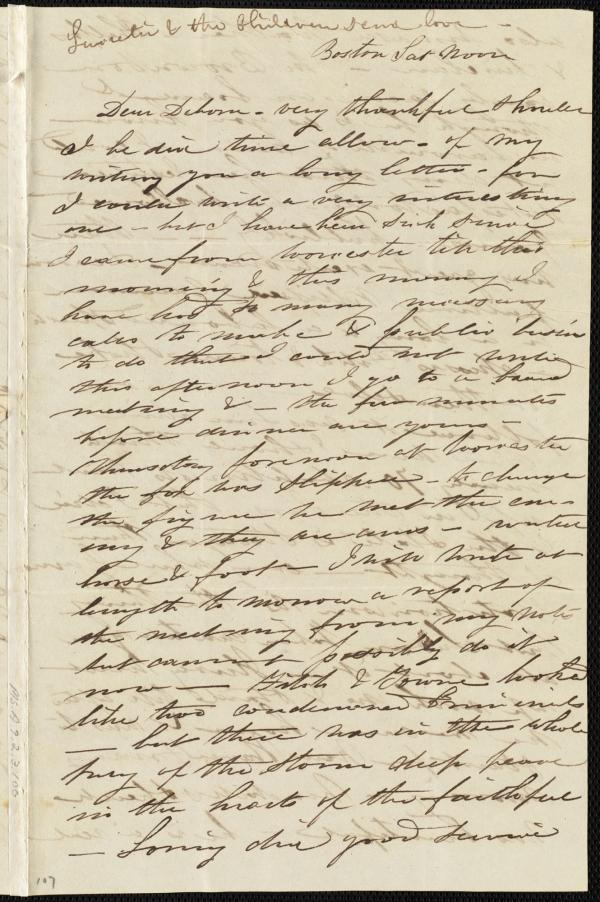 Lucretia & the Children send love -
Boston Sat Noon
Dear Debora - very thankful should
I be did time allow - of my
writing you a long letter - for
I could write a very interesting
one - but I have been sick since
I came from Worcester till this
morning & this morning I
have had so many necessary
calls to make & public busin
to do that I could not write
this afternoon I go to a board
meeting & - the few minutes
before dinner are yours -
Thursday forenoon at Worcester
the fox was slipped - to change
the figure he met the ene-
my & they are ours - routed
horse & foot - I will write at
length to morrow a report of
the meeting from my notes
but cannot possibly do it
now - Fitch & Towne looked
like two condemned criminals
- but there was in the whole
fury of the storm deep peace
in the hearts of the faithful
- Loring did good service
Ms.A.9.2.3.100
107